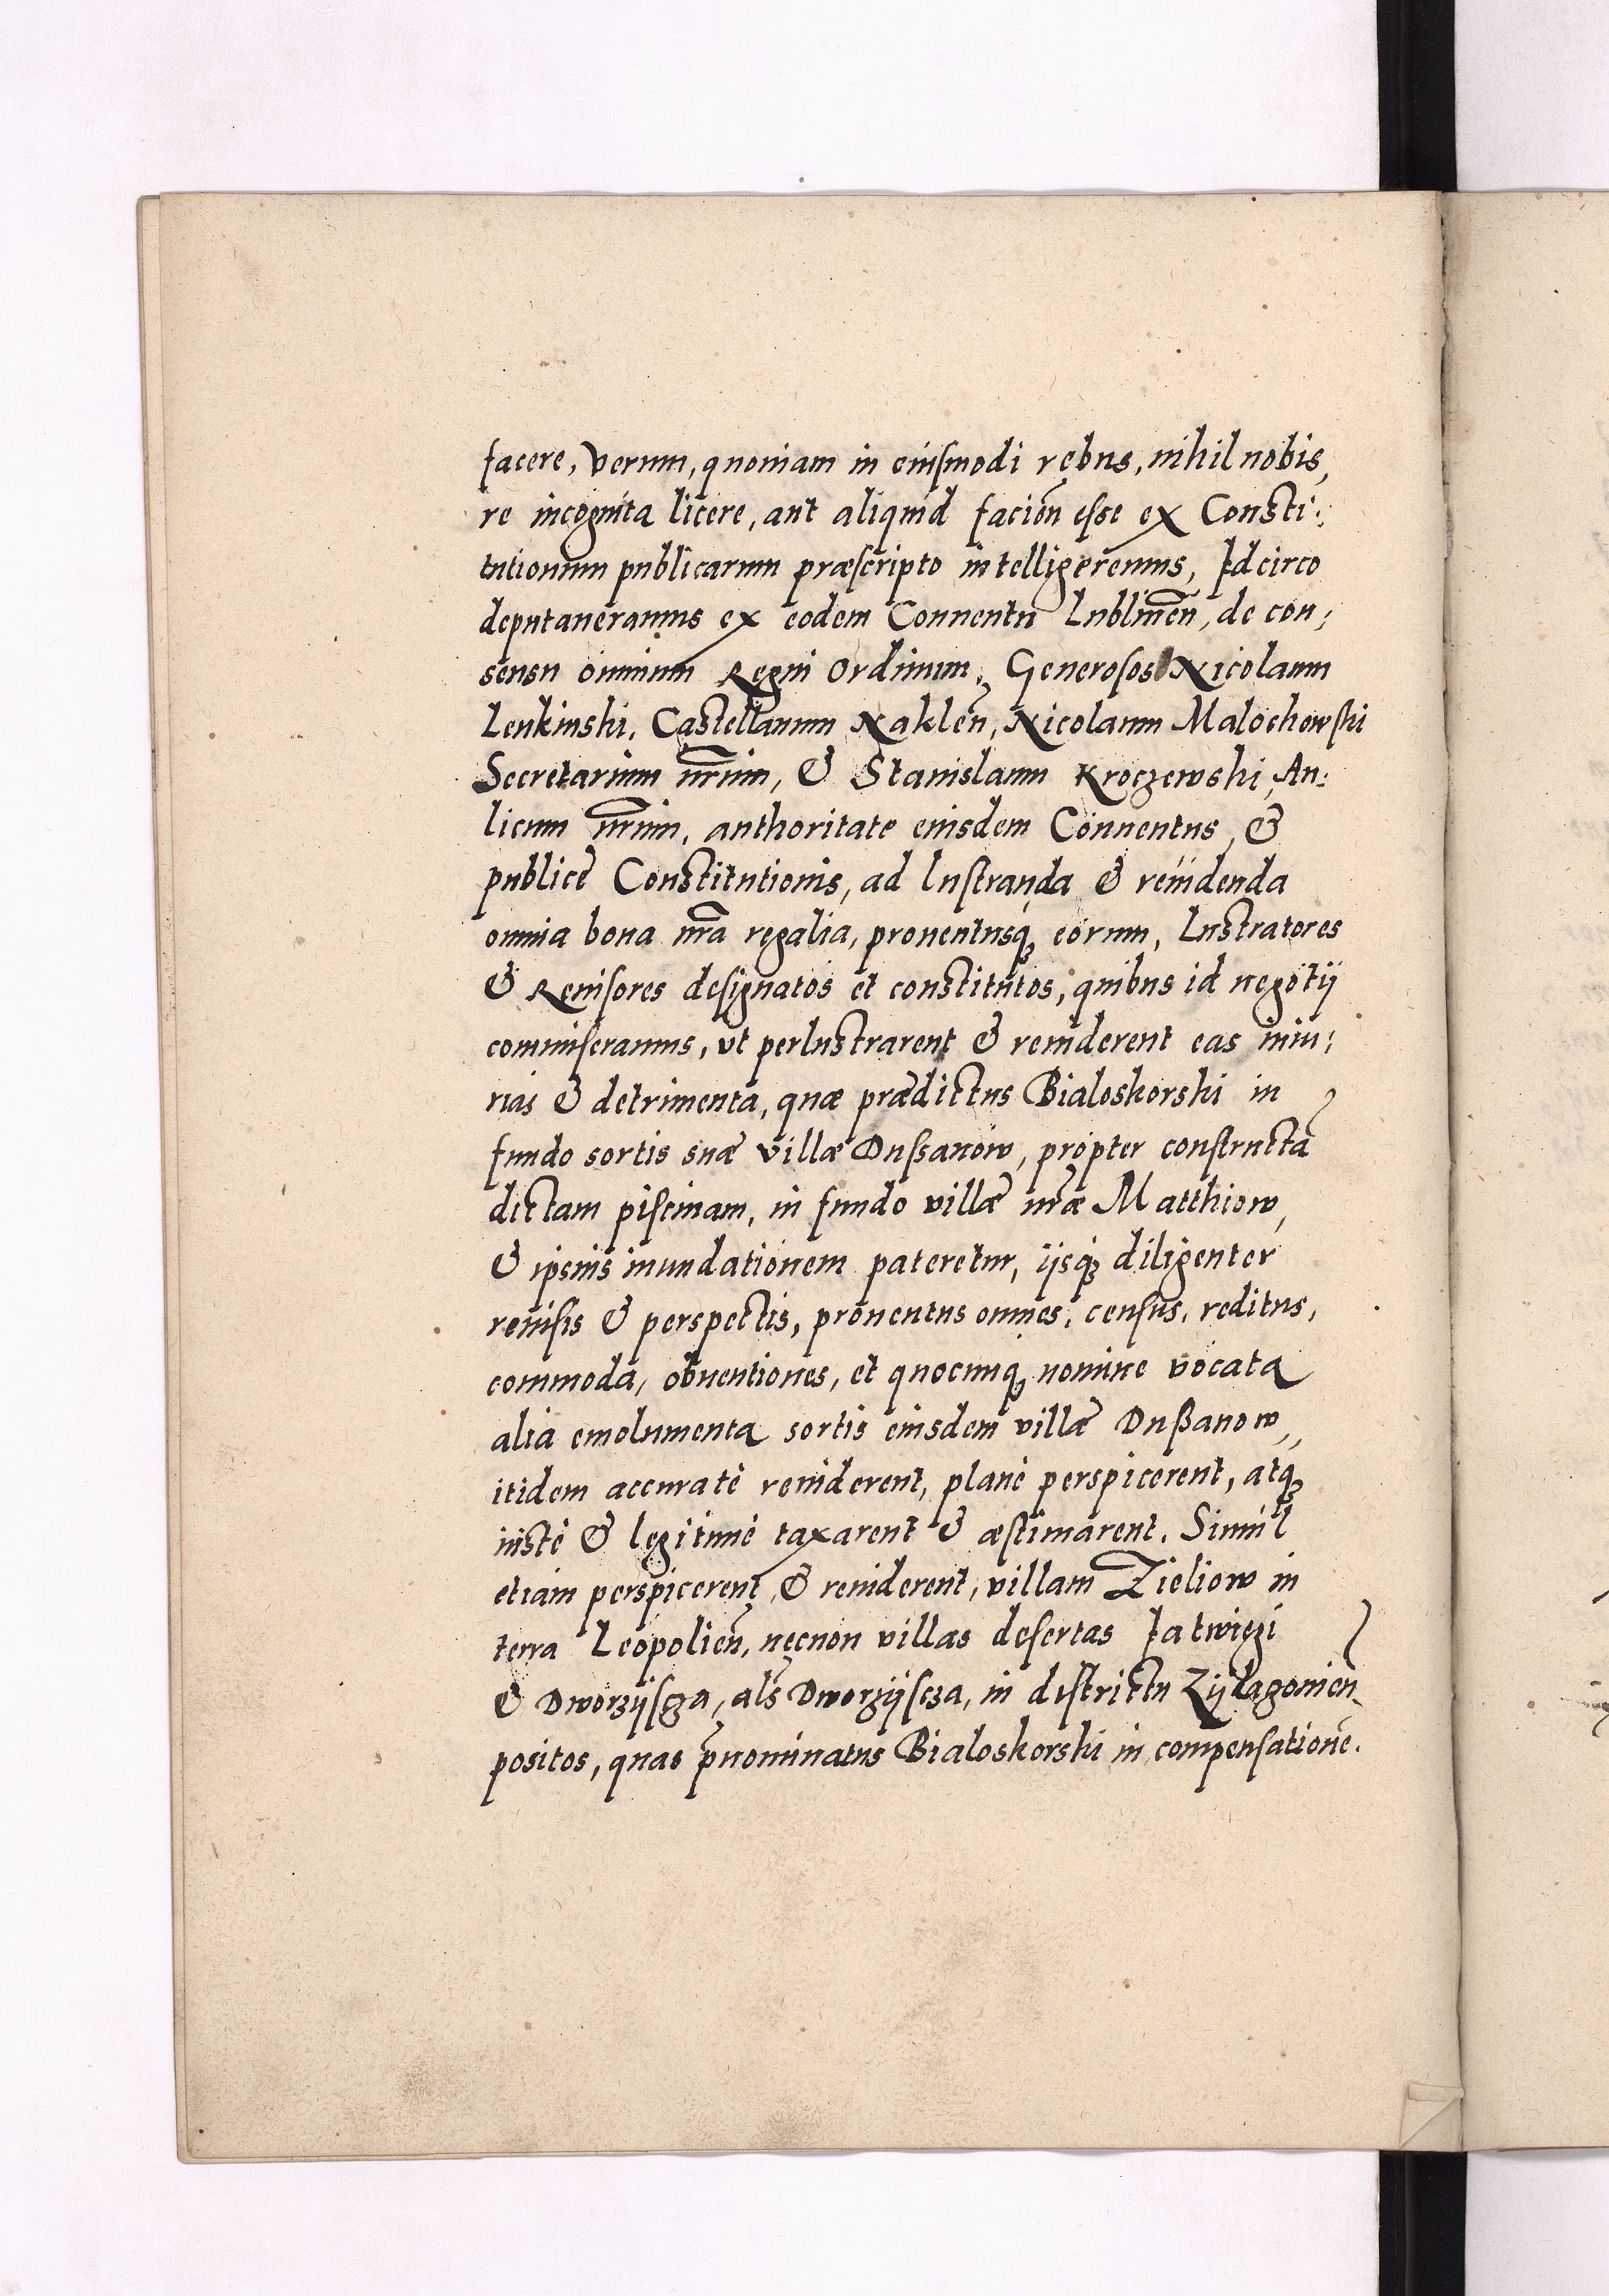 facere, verum, quoniam in eiusmodi rebus, nihil nobis,
re incognita licere, aut aliquid facien̄ esse ex Consti:
tutionum publicarum præscripto intelligeremus, Idcirco
deputaueramus ex eodem Conuentu Lublinen̄, de con:
sensu omnium Regni Ordinum, Generosos Nicolaum
Lenkinski, Castellanum Naklen̄, Nicolaum Malochowski
Secretarium nr̄um, & Stanislaum Kroczewski, Au:
licum nr̄um, authoritate eiusdem Conuentus, &
publicę Constitutionis, ad lustranda & reuidenda
omnia bona nr̄a regalia, prouentusq₃ eorum, Lustratores
& Reuisores designatos et constitutos, quibus id negotij
commiseramus, vt perlustrarent & reuiderent eas iniu:
rias & detrimenta, quæ prædictus Bialoskorski in
fundo sortis suæ villæ Dußanow, propter constructā
dictam piscinam, in fundo villæ nr̄æ Matthiow,
& ipsius inundationem pateretur, ijsq₃ diligenter
reuisis & perspectis, prouentus omnes, census, reditus,
commoda, obuentiones, et quocunq₃ nomine vocata
alia emolumenta sortis eiusdem villæ Dußanow,
itidem accuratè reuiderent, planè perspicerent, atq₃
iustè & legitimè taxarent & æstimarent. Simul
etiam perspicerent, & reuiderent, villam Zieliow in
terra Leopolien̄, necnon villas desertas Jatwiegi
& Dworzijscza, als̄ Dworzijscza, in districtu Zijdagonien̄
positos, quas p̄nominatus Bialoskorski in compensationē.